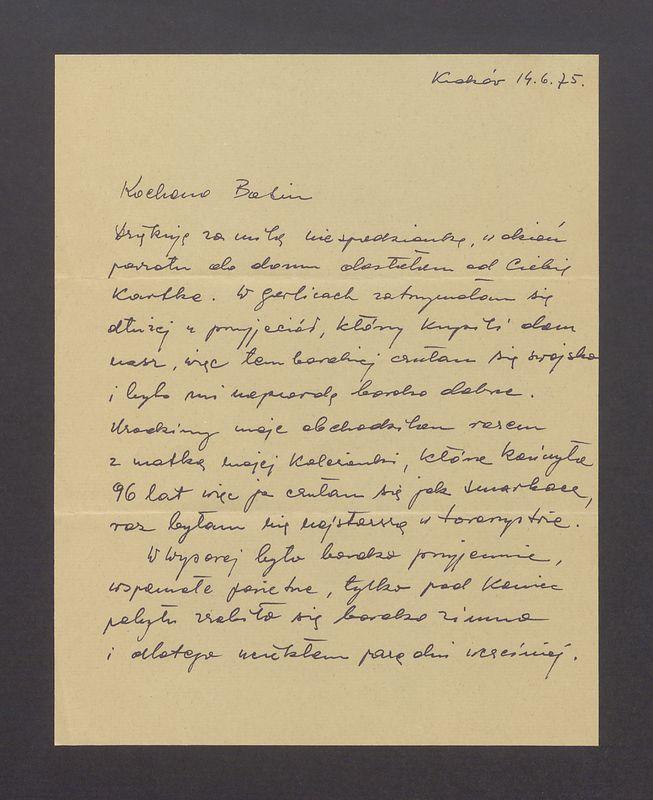 Kraków 14.6.75.
Kochana Basiu
Dziękuję za miłą niespodziankę, w dzień
powrotu do domu dostałam od Ciebie
kartkę. W Gorlicach zatrzymałam się
dłużej u przyjaciół, którzy kupili dom
nasz, więc tem bardziej czułam się swojsko
i było mi naprawdę bardzo dobrze.
Urodziny moje obchodziłam razem
z matką mojej koleżanki, która kończyła
96 lat więc ja czułam się jak smarkacz,
raz byłam nie najstarszą w towarzystwie.
W Wysowej było bardzo przyjemnie,
wspaniałe powietrze, tylko pod koniec
pobytu zrobiło się bardzo zimno
i dlatego uciekłam parę dni wcześniej.